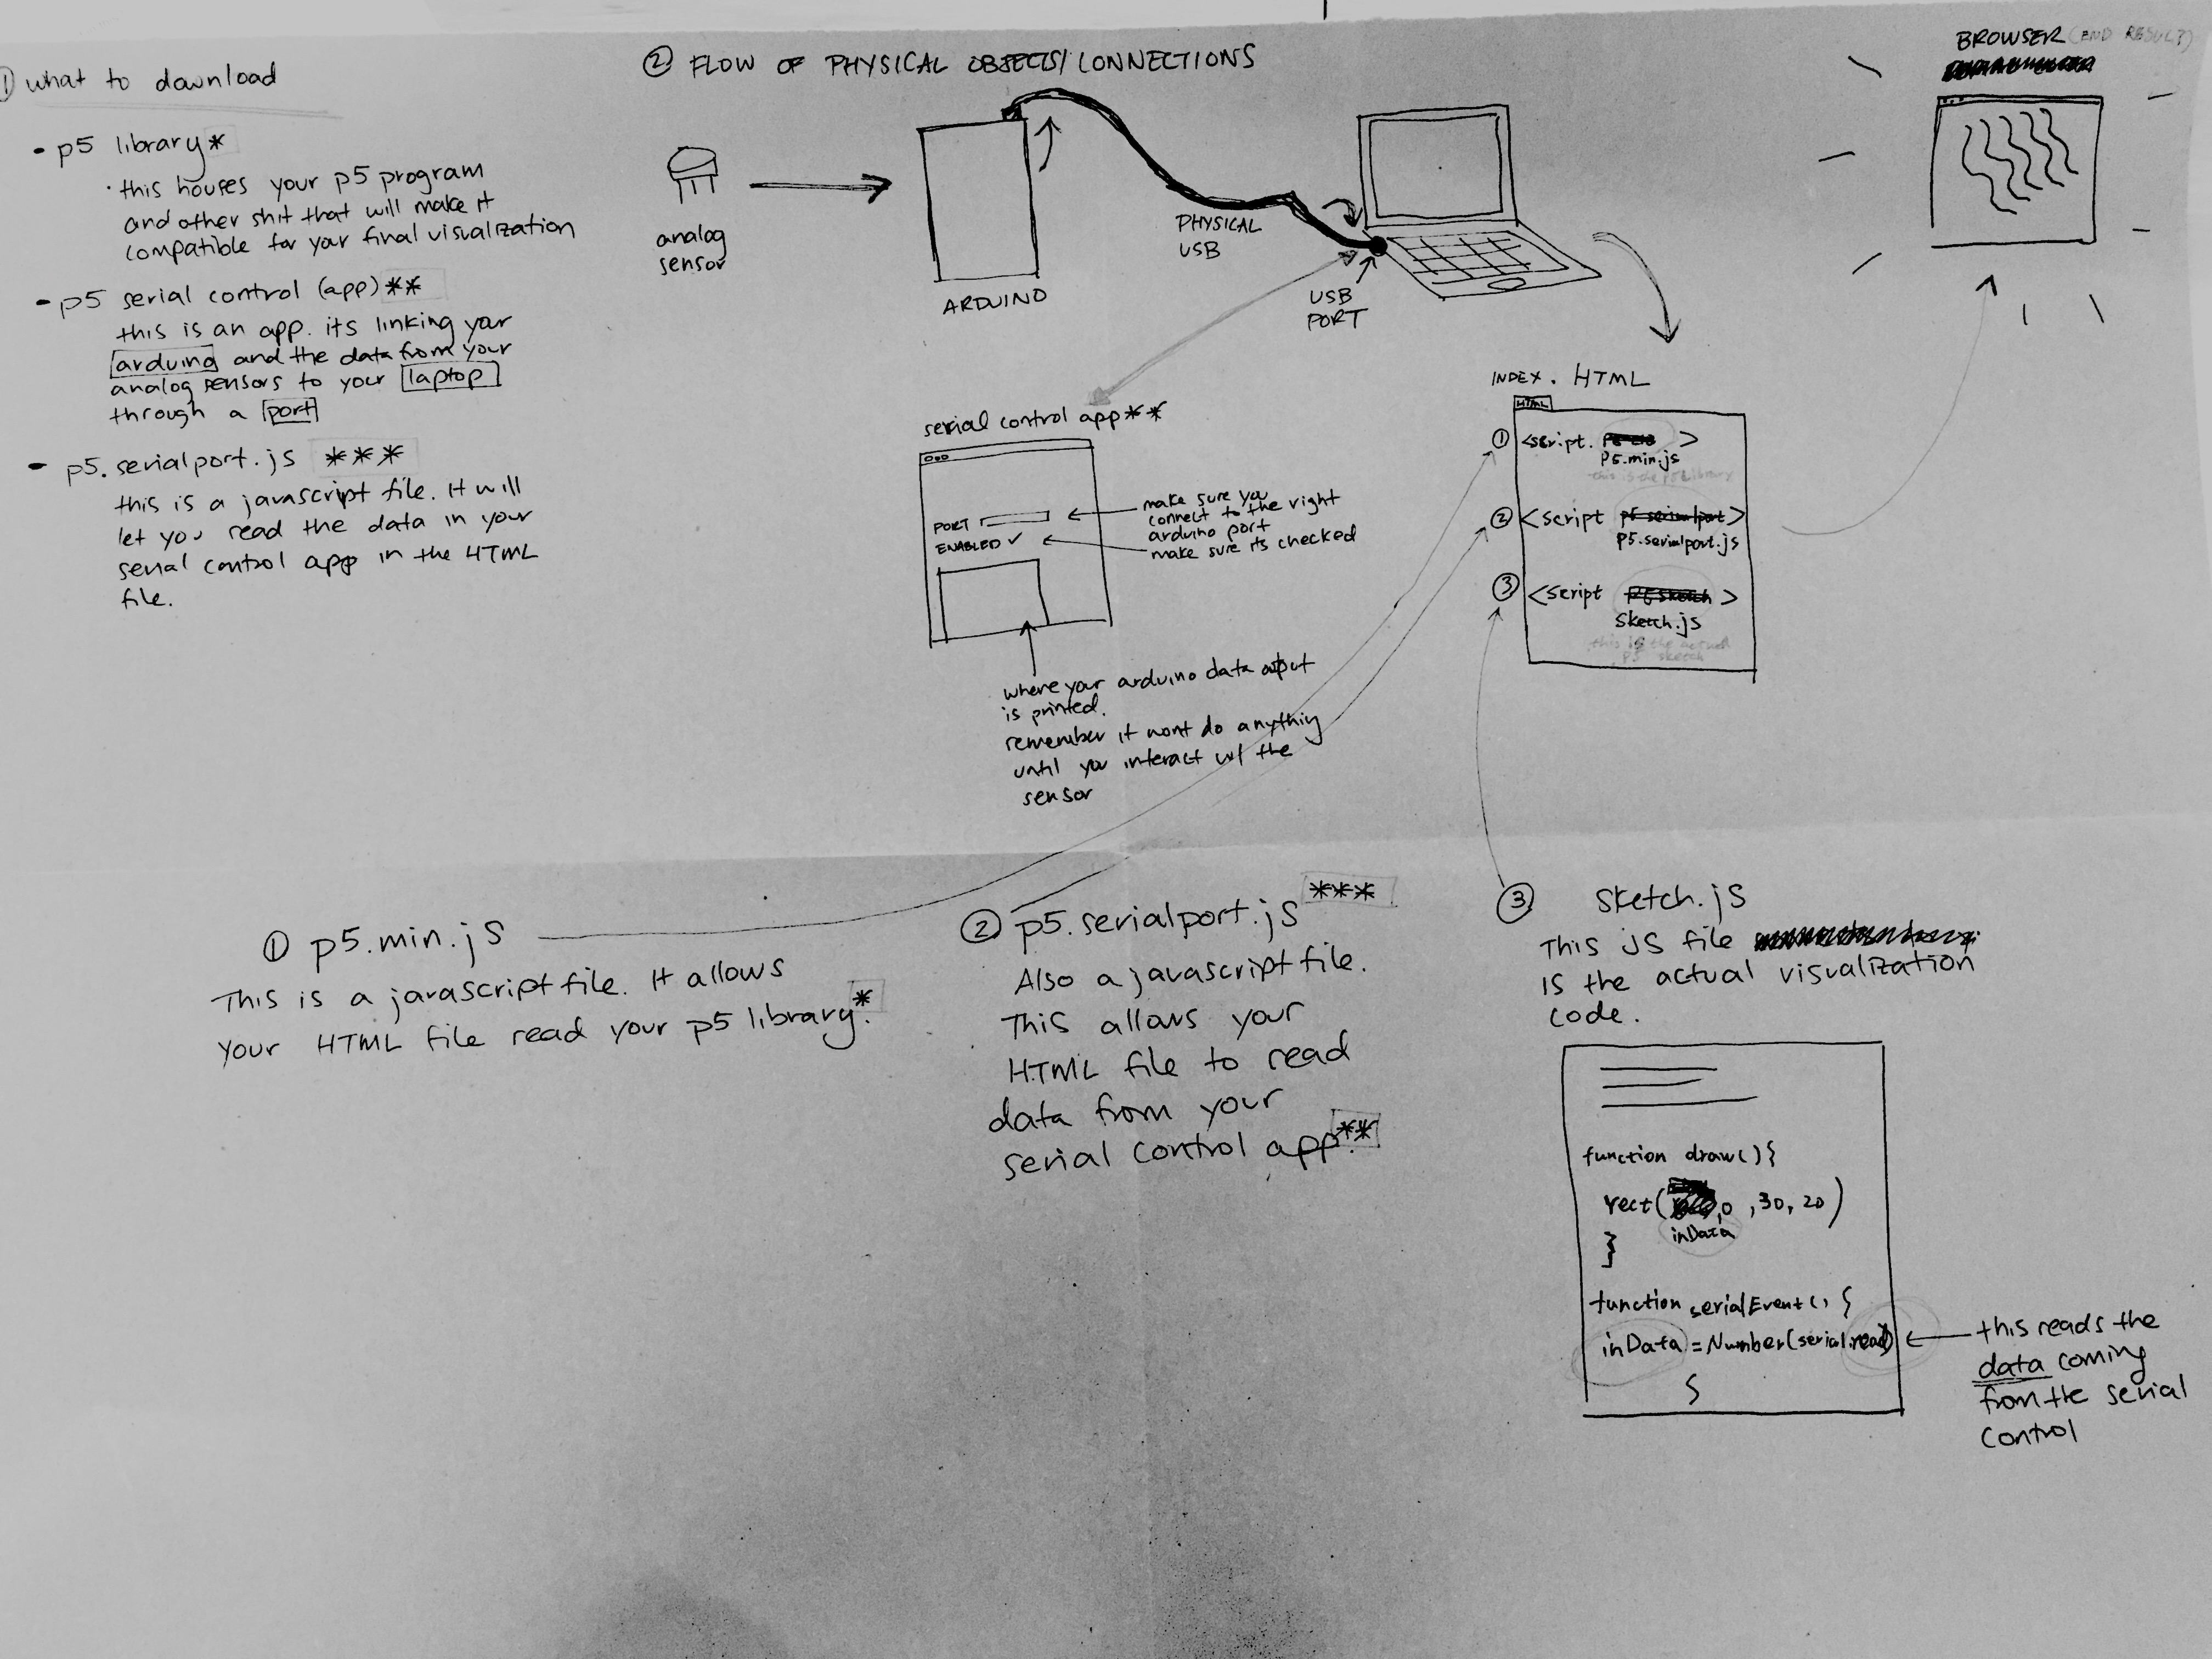 ① what to download
- p5 library*
· this houses your p5 program
and other shit that will make it
compatible for your final visualization
- p5 serial control (app)**
this is an app. its linking your
arduino and the data from your
analog sensors to your laptop
through a port
- p5.serialport.js ***
this is a javascript file. It will
let you read the data in your
serial control app in the HTML
file.
② FLOW OF PHYSICAL OBJECTS/CONNECTIONS
analog
sensor
ARDUINO
PHYSICAL
USB
USB
PORT
BROWSER (END RESULT)
serial control app**
PORT
ENABLED ✓
make sure you
connect to the right
arduino port
make sure its checked
where your arduino data output
is printed.
remember it wont do anything
until you interact w/ the
sensor
INDEX. HTML
HTML
① <script. >
p5.min.js
this is the p5 library
② <script p5.serialport>
p5.serialport.js
③ <script p5 sketch >
Sketch.js
this is the actual
p5 sketch
① p5.min.js
This is a javascript file. It allows
your HTML file read your p5 library.*
② p5.serialport.js ***
Also a javascript file.
This allows your
HTML file to read
data from your
serial control app.**
③ sketch.js
This JS file
is the actual visualization
code.
function draw(){
rect( ,0 ,30, 20)
inData
}
function serialEvent() {
inData = Number(serial.read)
}
this reads the
data coming
from the serial
control